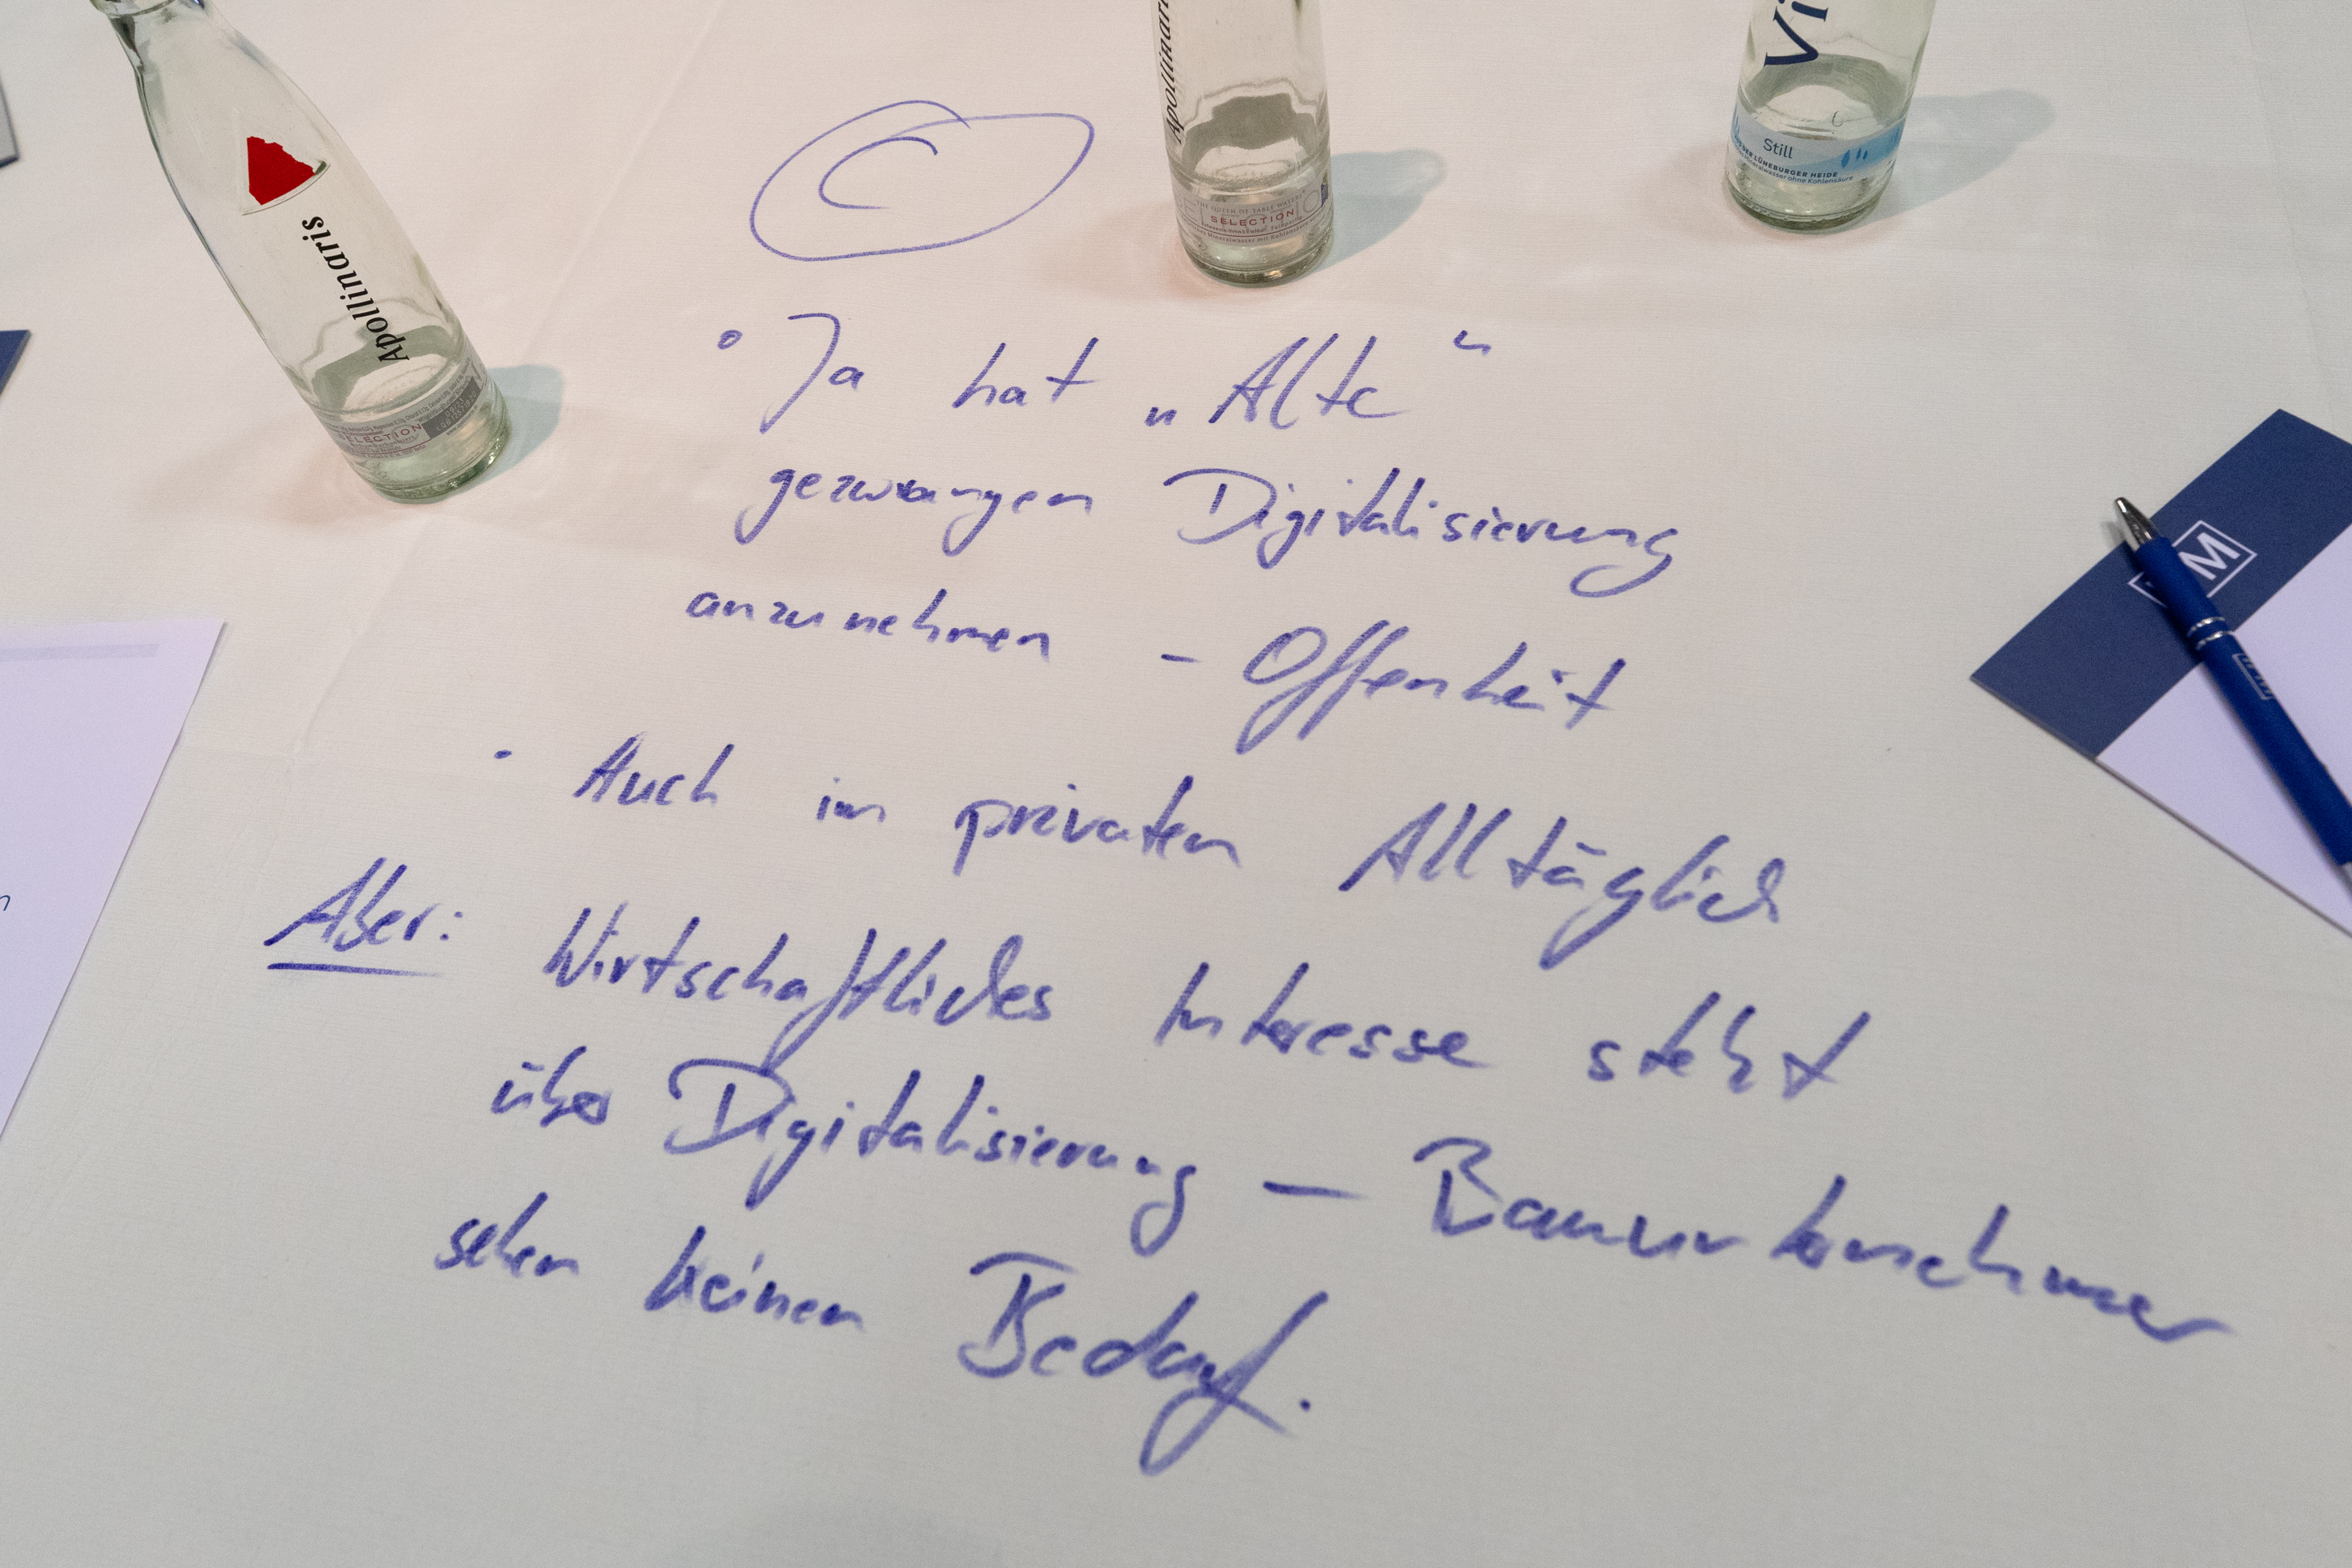 Apollinaris
SELECTION
Apollinaris
THE QUEEN OF TABLE WATERS
SELECTION
Vi
Still
LÜNEBURGER HEIDE
Mineralwasser ohne Kohlensäure
C
° Ja hat „Alte“
gezwungen Digitalisierung
anzunehmen - Offenheit
· Auch im privaten Alltäglich
Aber: Wirtschaftliches Interesse steht
über Digitalisierung — Bauunternehmer
sehen keinen Bedarf.
M